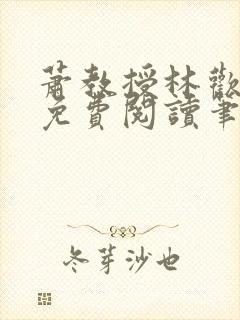 蕭教授林歡
免費閱讀筆
冬芽沙也